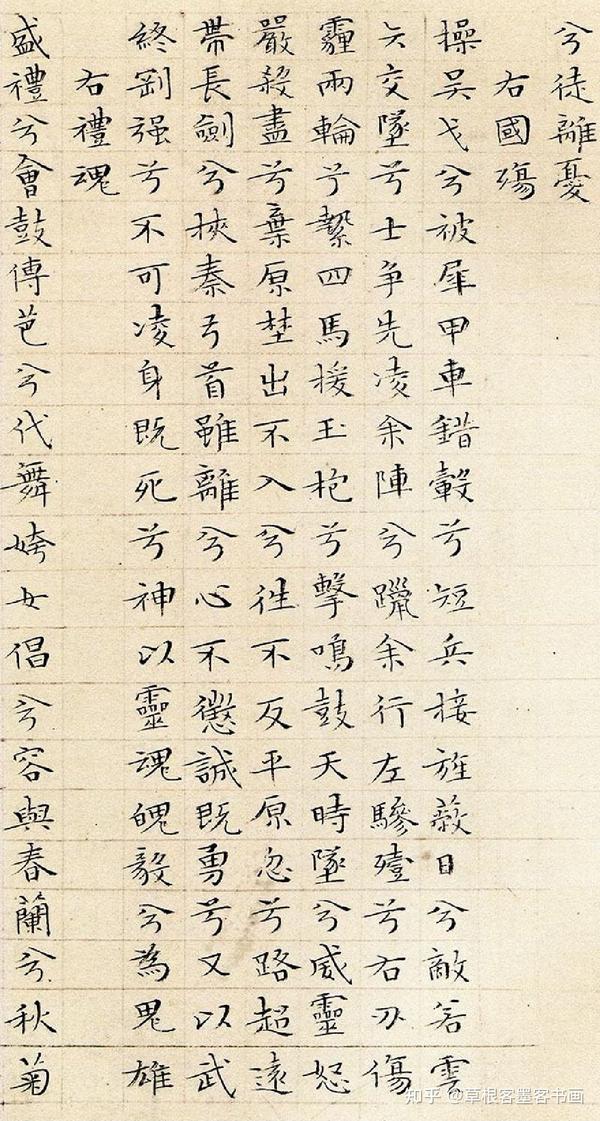 兮徒離憂
右國殤
操吴戈兮被犀甲車錯轂兮短兵接旌蔽日兮敵若雲
矢交墜兮士争先凌余陣兮躐余行左驂殪兮右刃傷
霾兩輪兮縶四馬援玉枹兮擊鳴鼓天時墜兮威靈怒
嚴殺盡兮棄原埜出不入兮往不反平原忽兮路超遠
帶長劍兮挾秦弓首雖離兮心不懲誠既勇兮又以武
終剛强兮不可凌身既死兮神以靈魂魄毅兮為鬼雄
右禮魂
盛禮兮會鼓傳芭兮代舞姱女倡兮容與春蘭兮秋菊
知乎 @草根客墨客书画